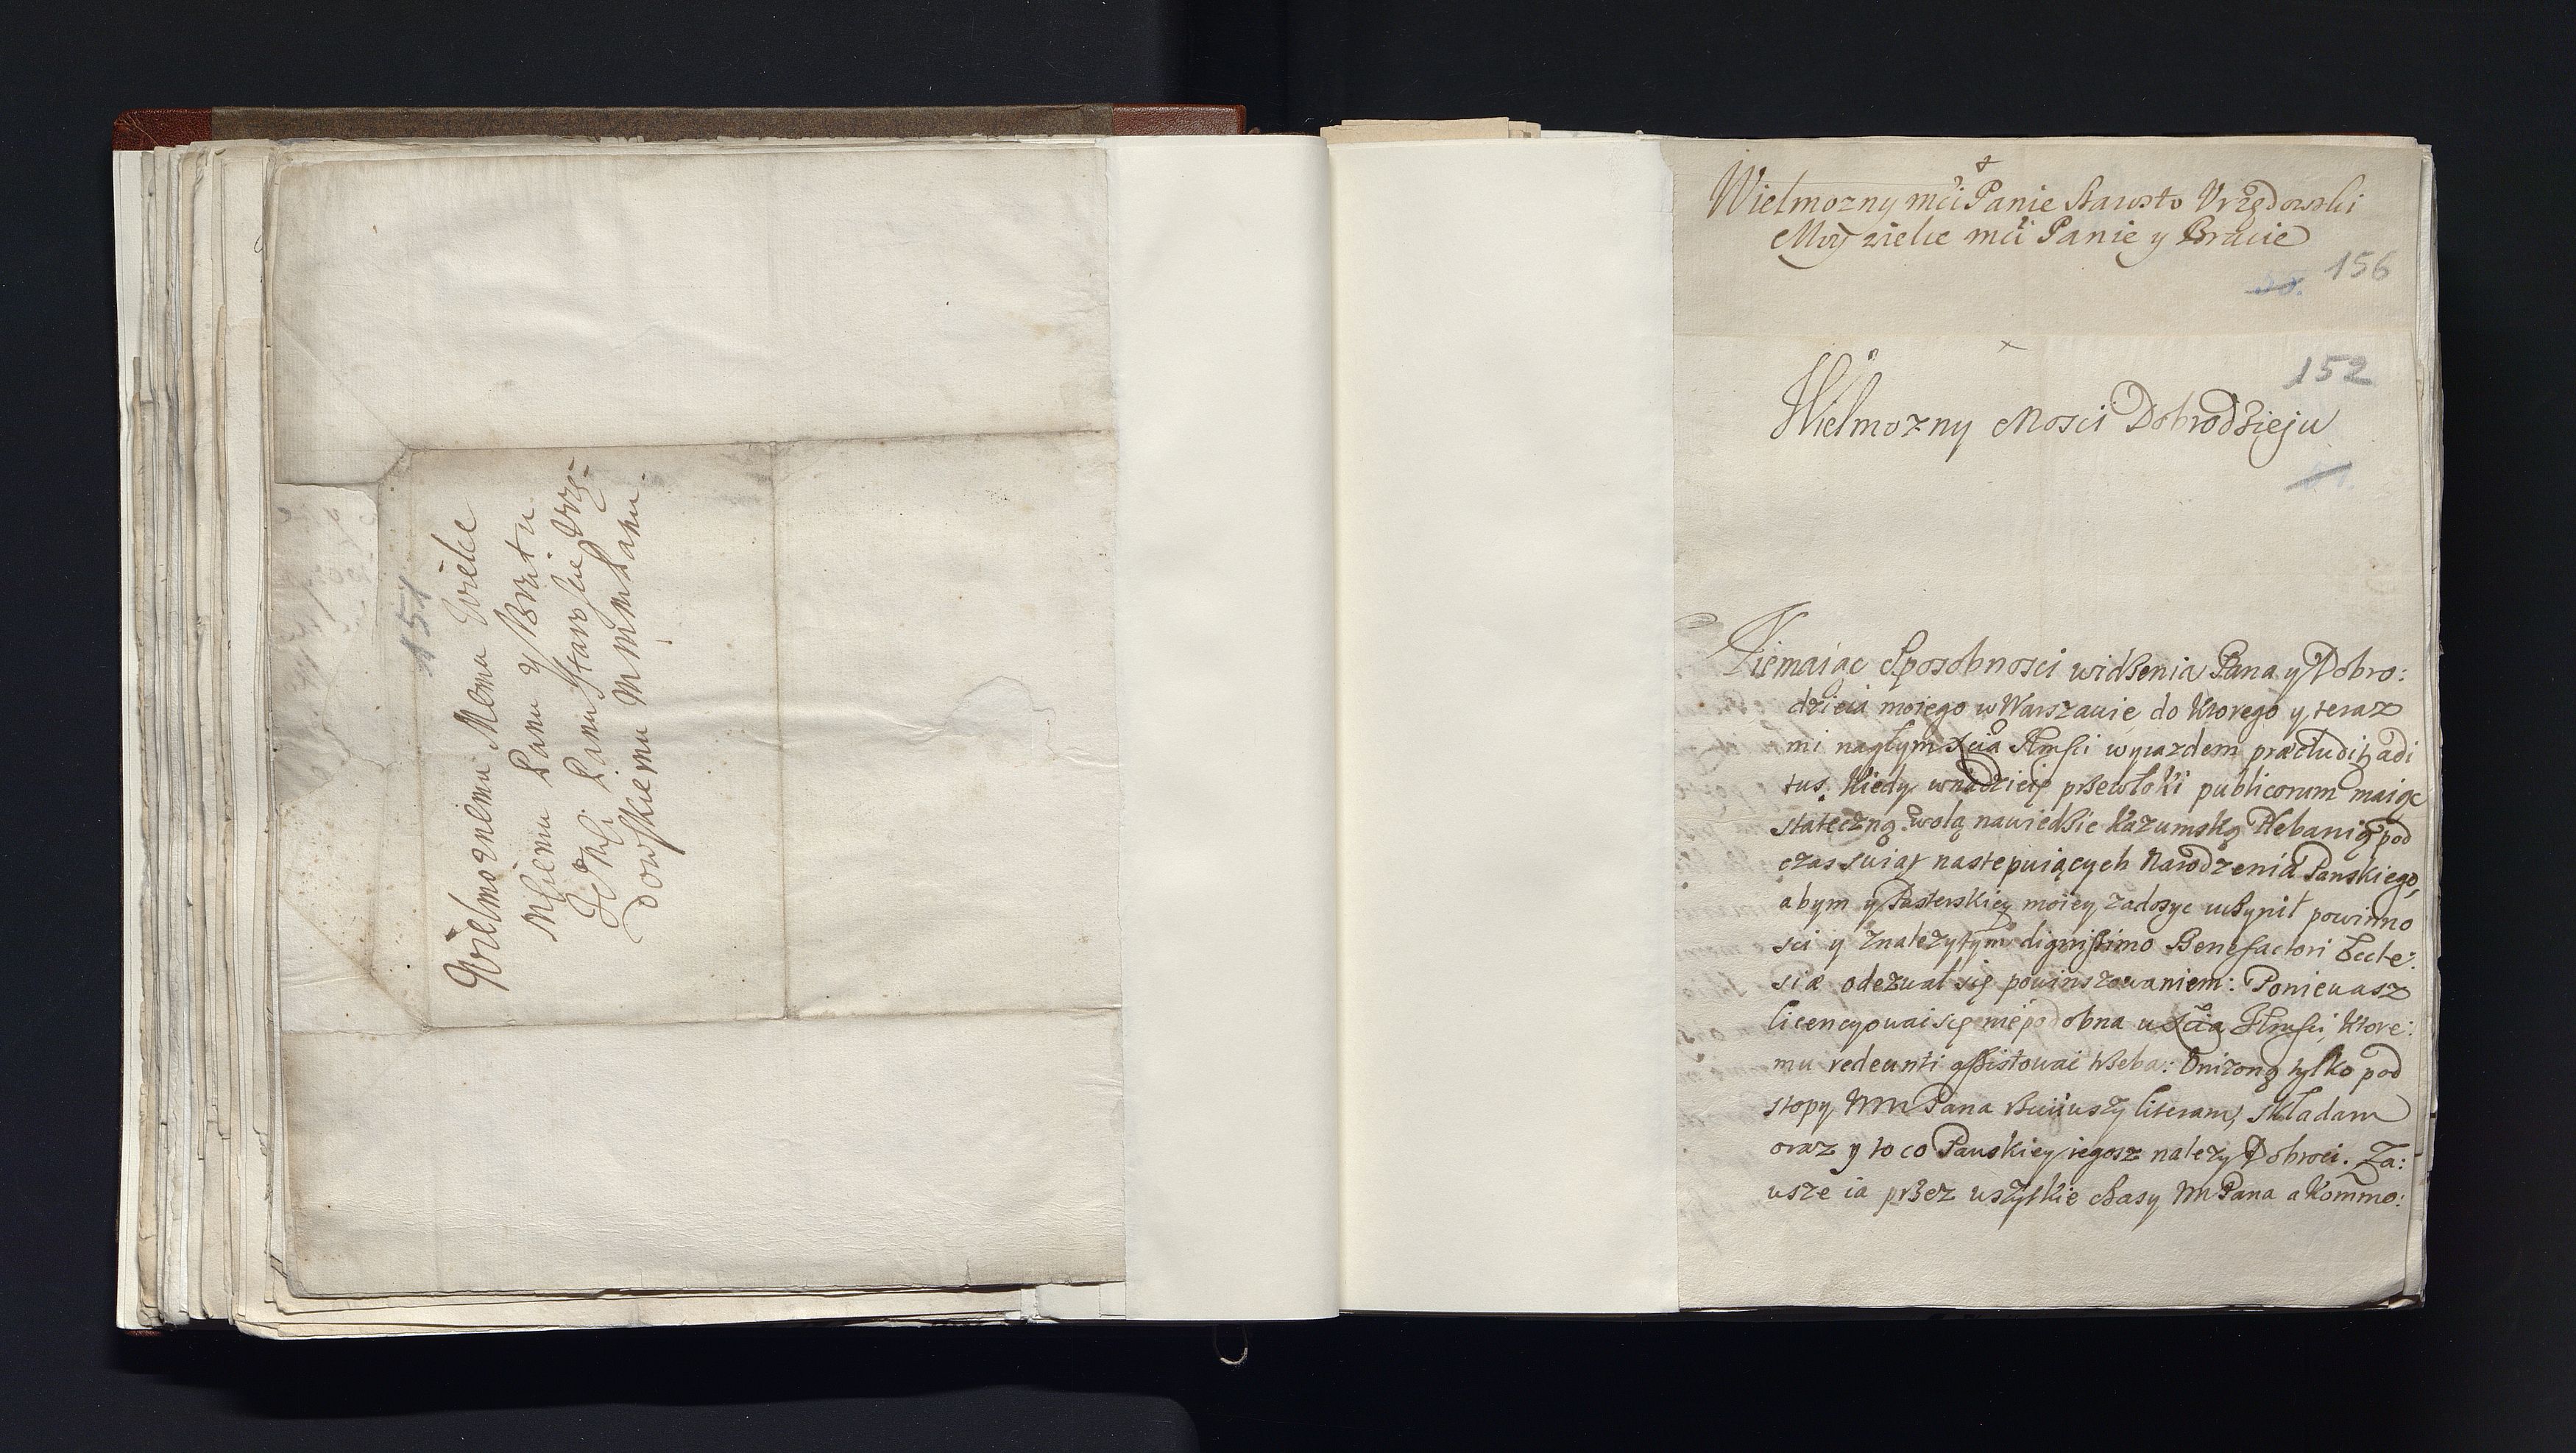 151
Wielmożnemu Memu Wielce
Mściemu Panu y Bratu
Panu Staroście Vrzę-
dowskiemu MMM Panu.
Wielmozny mći Panie Starosto Vrzędowski
Moy wielce mći Panie y Bracie
156
152
Wielmozny Mosci Dobrodzieju
Niemaiąc Sposobnosci widzenia Pana y Dobro:
dzieia moiego w Warszawie, do ktorego y teraz
mi nagłym Xcia Jmsci wyiazdem præcludit, adi
tus. Kiedy w nadzieię przewłoki publicorum maiąc
stateczną wolą nawiedzic Kazumską Plebanią pod
czas swiąt nastepuiących Narodzenia Panskiego,
abym y Pasterskiey moiey zadosyc uczynił powinno
sci y z należytym dignissimo Benefactori Eccle:
siæ odezwał się powinszowaniem: Poniewasz
licencyowac się niepodobna u Xcia Jmsci, ktore:
mu redeunti assistowac trzeba: Unizoną tylko pod
stopy MM Pana rzuciwszy literam, składam
oraz y to co Panskiey iegosz należy Dobroci. Za:
wsze ia przez wszytkie czasy M Pana akommo: